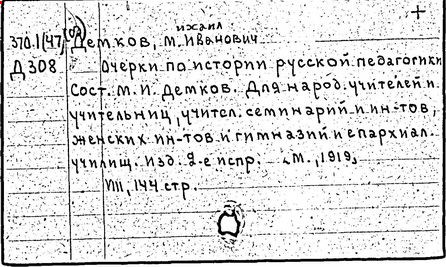 +
ихаил
370.1(47)(09) Демков, М. Иванович
Д308 Очерки по истории русской педагогики
Сост. М. И. Демков. Для народ. учителей и
учительниц, учител. семинарий и ин-тов,
женских ин-тов и гимназий и епархиал.
училищ. Изд. 2-е испр. М., 1919,
VIII, 144 стр.